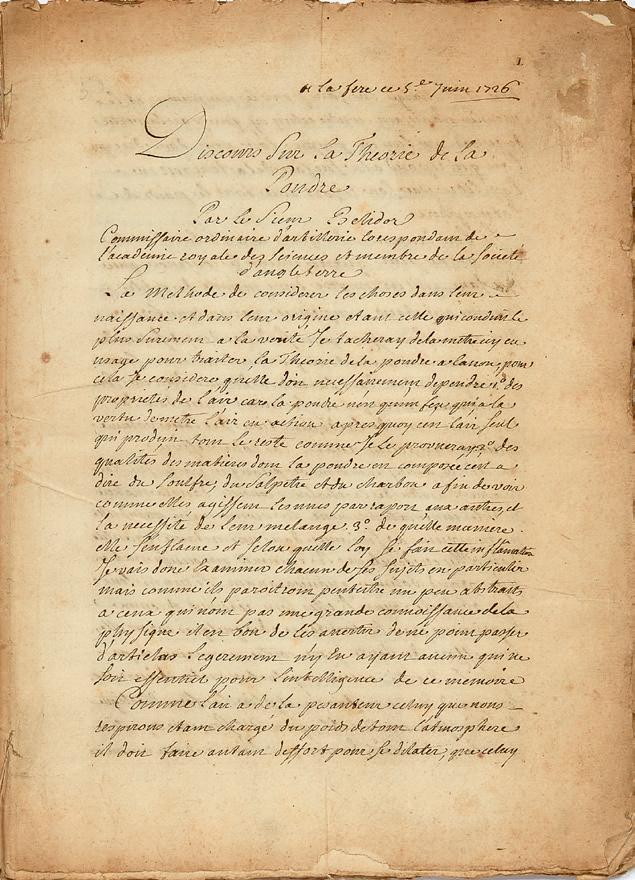 1
a la fere ce 5.e Juin 1726
Discours Sur La Theorie de La
Poudre
Par le Sieur Belidor
Commissaire ordinaire d'artillerie Corespondant de
l'académie royale des Sciences et membre de la Societé
d'angleterre
La Methode de considerer les choses dans leur
naissance et dans leur origine etant celle qui conduit le
plus surement a la verité Je tacheray de la mettre icy en
usage pour traiter la Theorie de la poudre a Canon, pour
cela Je considere qu'elle doit necessairement dependre 1.o des
proprietes de l'air car la poudre n'en qu'un feu qui a la
vertu de metre l'air en action apres quoy cen l'air seul
qui produit tout le reste comme Je le prouveray 2.o des
qualités des matieres dont la poudre en composée cest a
dire du Soulfre, du Salpetre et du Charbon afin de voir
comme elles agissent les unes par raport aux autres, et
la necessité de leur melange 3.o de quelle maniere
elle s'enflame et selon quelle loy se fait cette inflamation
Je vais donc Examiner chacun de ses sujets en particulier
mais comme ils paroitront peutetre un peu abstraits
a ceux qui n'ont pas une grande connoissance de la
physique il en bon de les avertir de ne point passer
d'articles legerement n'y en ayant aucun qui ne
soit essentiel pour l'intelligence de ce memoire
Comme l'air a de la pesanteur celuy que nous
respirons etant chargé du poids de tout l'atmosphere
il doit faire autant deffort pour se dilater, que celuy